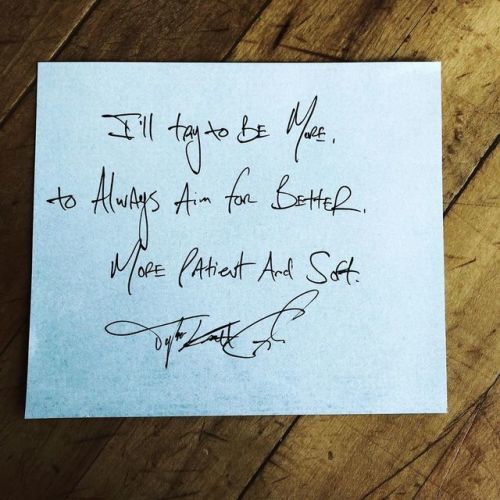 I'll try to BE MORE,
to Always Aim for BETTER.
MORE PAtient And Soft.
Tyler Knott